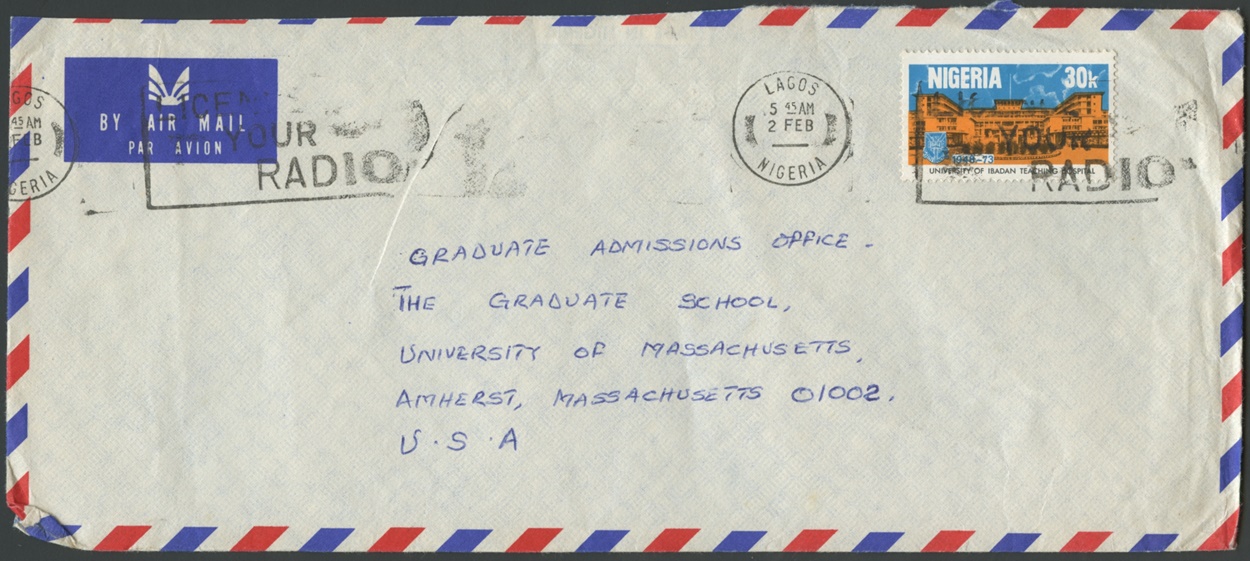 BY AIR MAIL
PAR AVION
GOS
45 AM
FEB
GERIA
YOUR
RADIO
LAGOS
5 45 AM
2 FEB
NIGERIA
NIGERIA 30k
1948-73
UNIVERSITY OF IBADAN TEACHING HOSPITAL
YOUR
RADIO
GRADUATE ADMISSIONS OFFICE.
THE GRADUATE SCHOOL,
UNIVERSITY OF MASSACHUSETTS,
AMHERST, MASSACHUSETTS 01002.
U.S.A